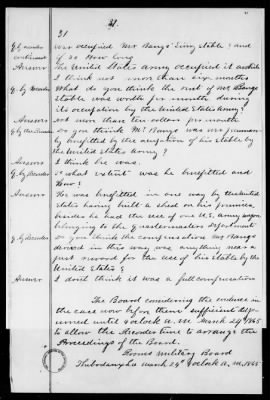 21.
21
Q by recorder was occupied Mr Bangs' Livery Stable? and
continued if so How long
Answer The United States army occupied it awhile
I think not more than six months
Q. by Recorder What do you think the rent of Mr Bangs
Stable was worth per month during
its occupation by the United States Army?
Answer Not more than ten dollars per month
Q by the Recorder Do you think Mr Bangs was
by benefitted by the occupation of his stable by
the United States Army?
Answer I think he was.
Q by Recorder To what extent was he benefitted and
How?
Answer He was benefitted in one way by the United
States having built a shed on his premises
besides he had the use of one U.S. Army wagon
belonging to the Quartermasters Department
Q by Recorder Do you think the compensation Mr Bangs
derived in this way was anything near a
just reward for the use of his stable by the
United States?
Answer I dont think it was a full compensation
The Board considering the evidence in
the case now before them sufficient adjo-
urned until 9 oclock a.m. March 29th 1865
to allow the Recorder time to arrange the
Proceedings of the Board.
Rooms Military Board
March 29th 9 oclock a.m. 1865